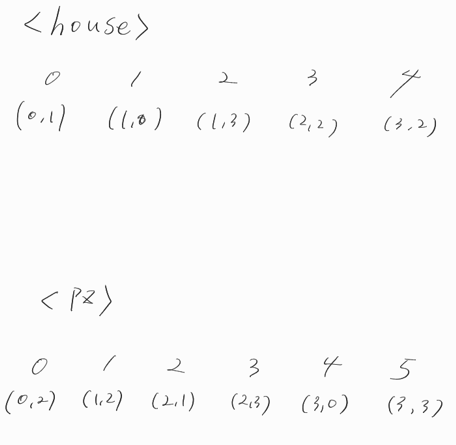 <house>
0 1 2 3 4
(0,1) (1,0) (1,3) (2,2) (3,2)
<PZ>
0 1 2 3 4 5
(0,2) (1,2) (2,1) (2,3) (3,0) (3,3)